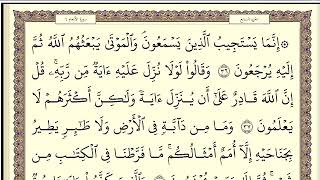 الجزء السابع
سورة الأنعام ٦
۞ إِنَّمَا يَسْتَجِيبُ ٱلَّذِينَ يَسْمَعُونَۘ وَٱلْمَوْتَىٰ يَبْعَثُهُمُ ٱللَّهُ ثُمَّ
إِلَيْهِ يُرْجَعُونَ ٣٦ وَقَالُوا۟ لَوْلَا نُزِّلَ عَلَيْهِ ءَايَةٌ مِّن رَّبِّهِۦۚ قُلْ
إِنَّ ٱللَّهَ قَادِرٌ عَلَىٰٓ أَن يُنَزِّلَ ءَايَةً وَلَٰكِنَّ أَكْثَرَهُمْ لَا
يَعْلَمُونَ ٣٧ وَمَا مِن دَآبَّةٍ فِى ٱلْأَرْضِ وَلَا طَٰٓئِرٍ يَطِيرُ
بِجَنَاحَيْهِ إِلَّآ أُمَمٌ أَمْثَالُكُمۚ مَّا فَرَّطْنَا فِى ٱلْكِتَٰبِ مِن